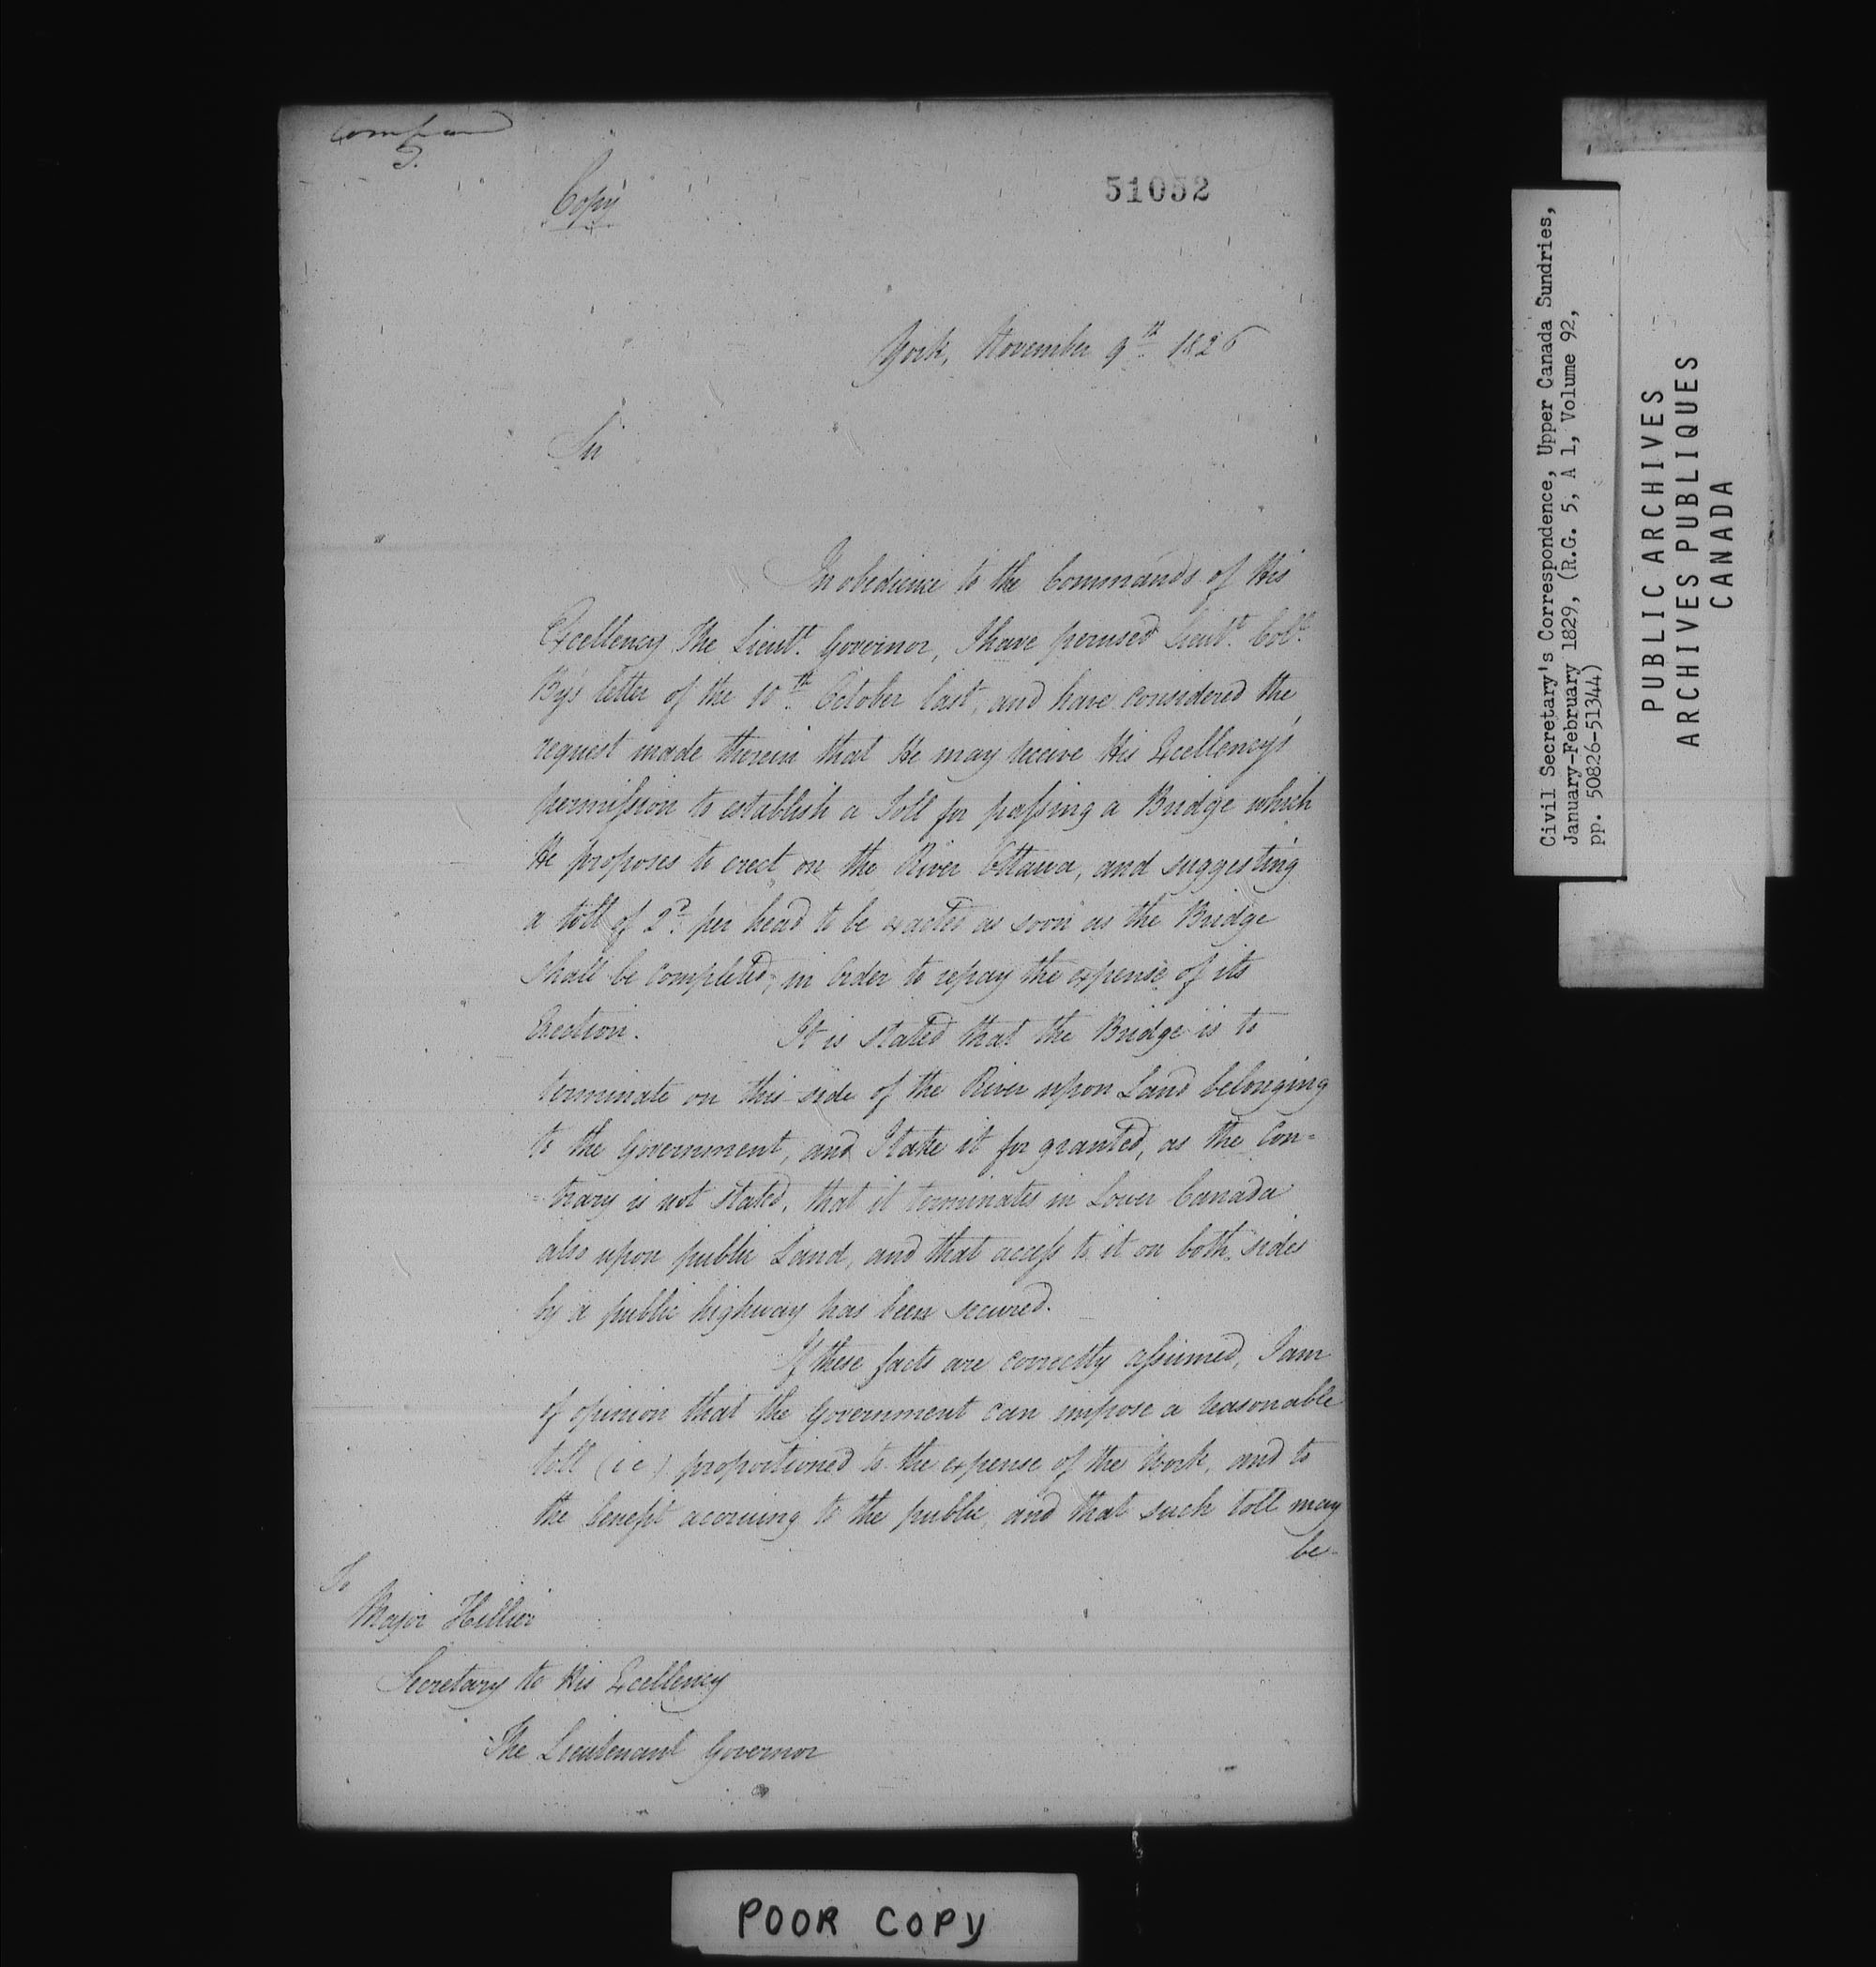 Copy
51052
York, November 9th 1826
Sir
In obedience to the Commands of His
Excellency The Lieutt. Governor, I have perused Lieutt. Coll.
By's letter of the 10th October last, and have considered the
request made therein that He may receive His Excellency's
permission to establish a Toll for passing a Bridge which
He proposes to erect on the River Ottawa, and suggesting
a toll of 2d. per head to be exacted as soon as the Bridge
shall be completed, in Order to repay the expense of its
Erection. It is stated that the Bridge is to
terminate on this side of the River upon Land belonging
to the Government, and I take it for granted, as the Con=
=trary is not stated, that it terminates in Lower Canada
also upon public Land, and that access to it on both sides
by a public highway has been secured.
If these facts are correctly assumed, I am
of opinion that the Government can impose a reasonable
toll (i e) proportioned to the expense of the Work, and to
the benefit accruing to the public, and that such toll may
be
To
Major Hillier
Secretary to His Excellency
The Lieutenant Governor
POOR COPY
Civil Secretary's Correspondence, Upper Canada Sundries,
January-February 1829, (R.G. 5, A 1, Volume 92,
pp. 50826-51344)
PUBLIC ARCHIVES
ARCHIVES PUBLIQUES
CANADA